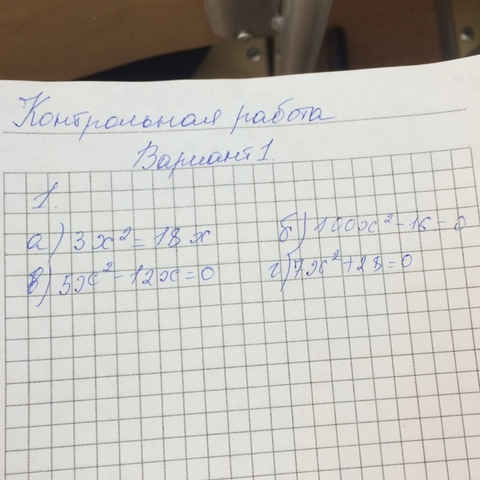 Контрольная работа
Вариант 1
1.
а) 3x² = 18x б) 100x² - 16 = 0
в) 5x² - 12x = 0 г) 7x² + 28 = 0